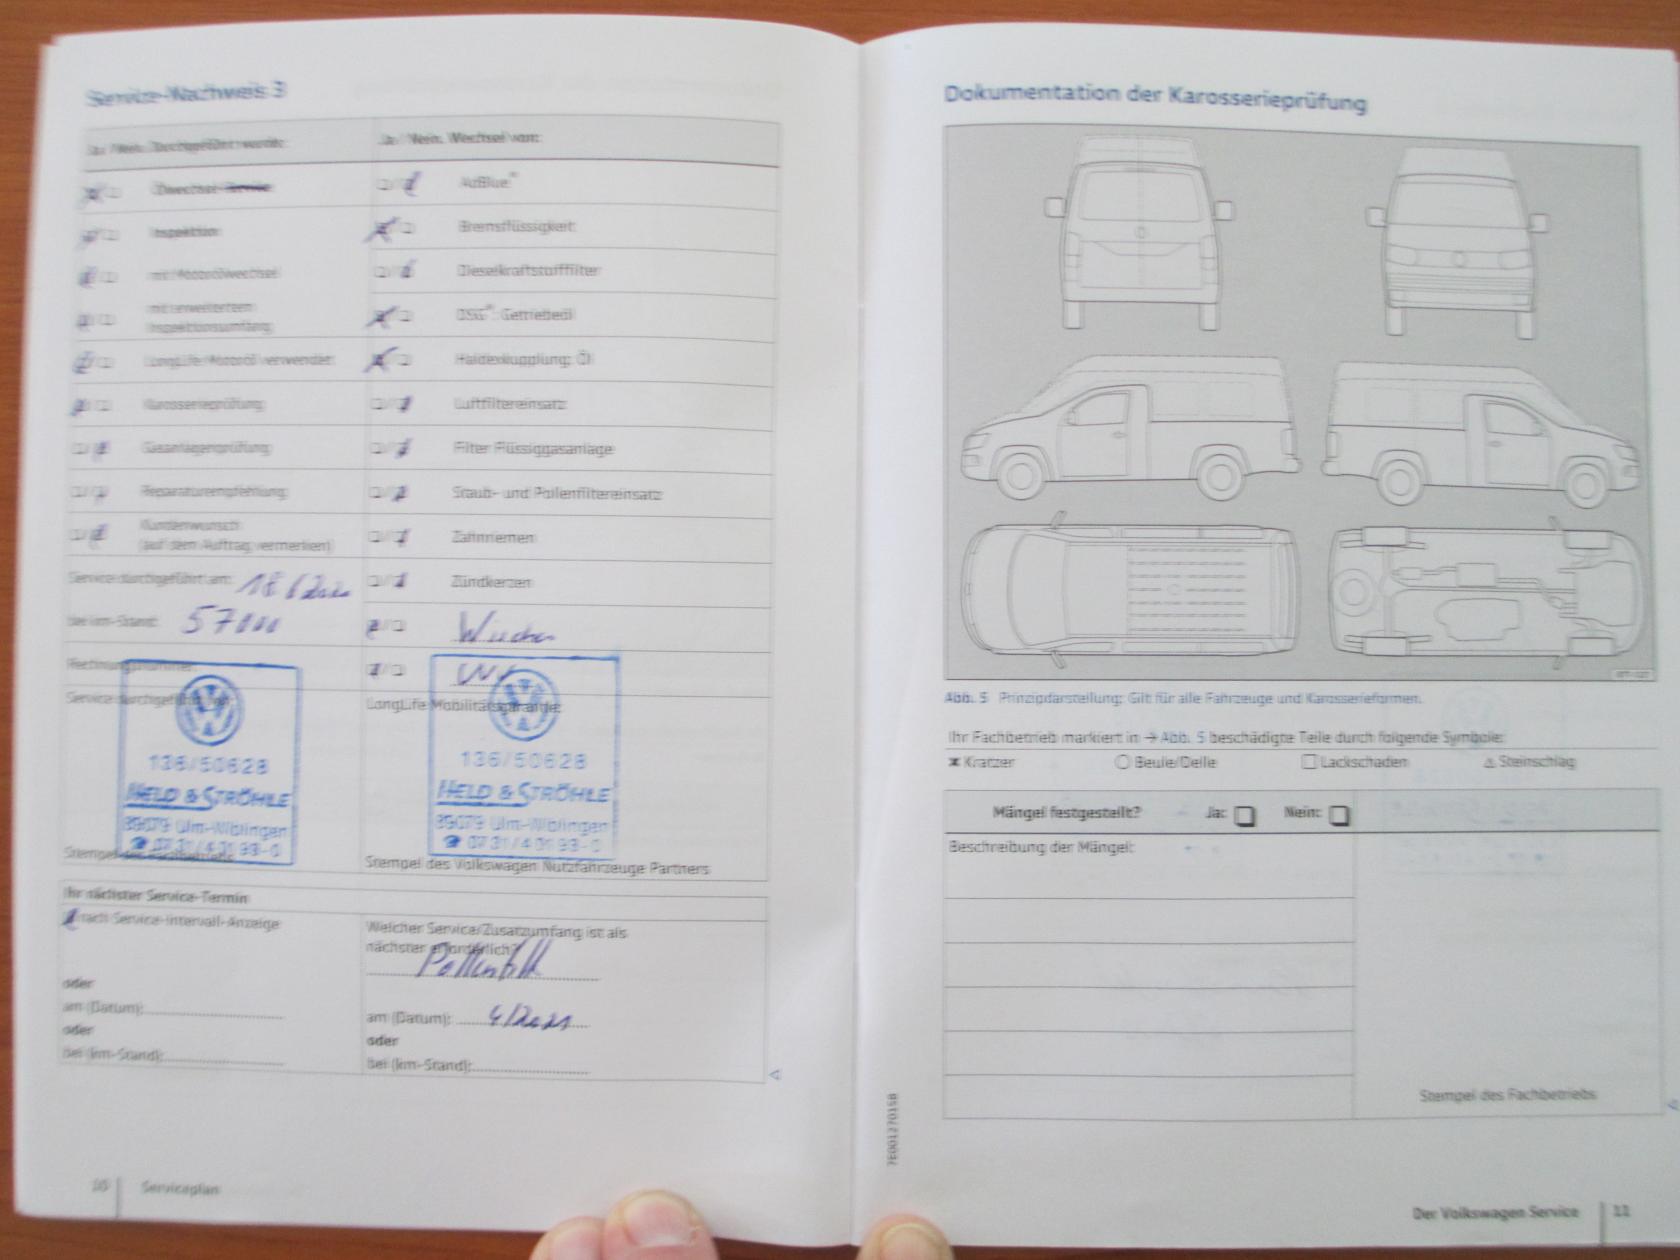 Service-Nachweis 3
Ja / Nein. Durchgeführt wurde:
Ja / Nein. Wechsel von:
Ölwechsel-Service
AdBlue®
Inspektion
Bremsflüssigkeit
mit Motorölwechsel
Dieselkraftstofffilter
mit erweitertem
Inspektionsumfang
DSG®: Getriebeöl
LongLife Motoröl verwendet
Haldexkupplung: Öl
Karosserieprüfung
Luftfiltereinsatz
Gasanlagenprüfung
Filter Flüssiggasanlage
Reparaturempfehlung
Staub- und Pollenfiltereinsatz
Kundenwunsch
(auf dem Auftrag vermerken)
Zahnriemen
Service durchgeführt am:
Zündkerzen
bei km-Stand:
Rechnungsnummer:
Service durchgeführt von:
LongLife Mobilitätsgarantie:
136/50628
HELD & STRÖHLE
89079 Ulm-Wiblingen
☎ 07 31 / 4 01 98-0
Stempel des Fachbetriebs
136/50628
HELD & STRÖHLE
89079 Ulm-Wiblingen
☎ 07 31 / 4 01 98-0
Stempel des Volkswagen Nutzfahrzeuge Partners
Ihr nächster Service-Termin
nach Service-Intervall-Anzeige
oder
am (Datum):
oder
bei (km-Stand):
Welcher Service/Zusatzumfang ist als
nächster erforderlich?
am (Datum): 4/2021
oder
bei (km-Stand):
10 Serviceplan
Dokumentation der Karosserieprüfung
Abb. 5 Prinzipdarstellung: Gilt für alle Fahrzeuge und Karosserieformen.
Ihr Fachbetrieb markiert in → Abb. 5 beschädigte Teile durch folgende Symbole:
Kratzer Beule/Delle Lackschaden Steinschlag
Mängel festgestellt? Ja: Nein:
Beschreibung der Mängel:
Stempel des Fachbetriebs
7E0012701SB
Der Volkswagen Service 11